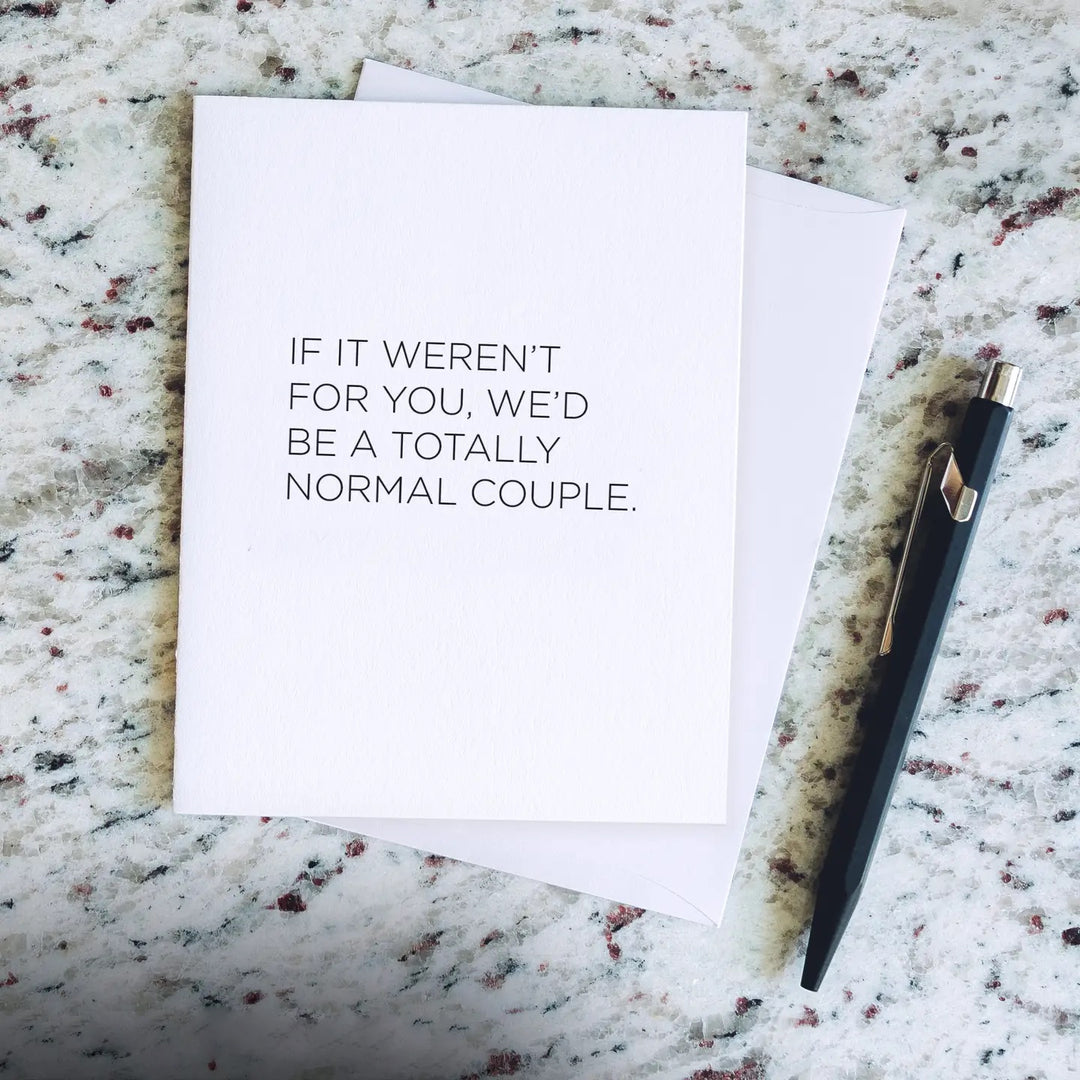 IF IT WEREN’T
FOR YOU, WE’D
BE A TOTALLY
NORMAL COUPLE.